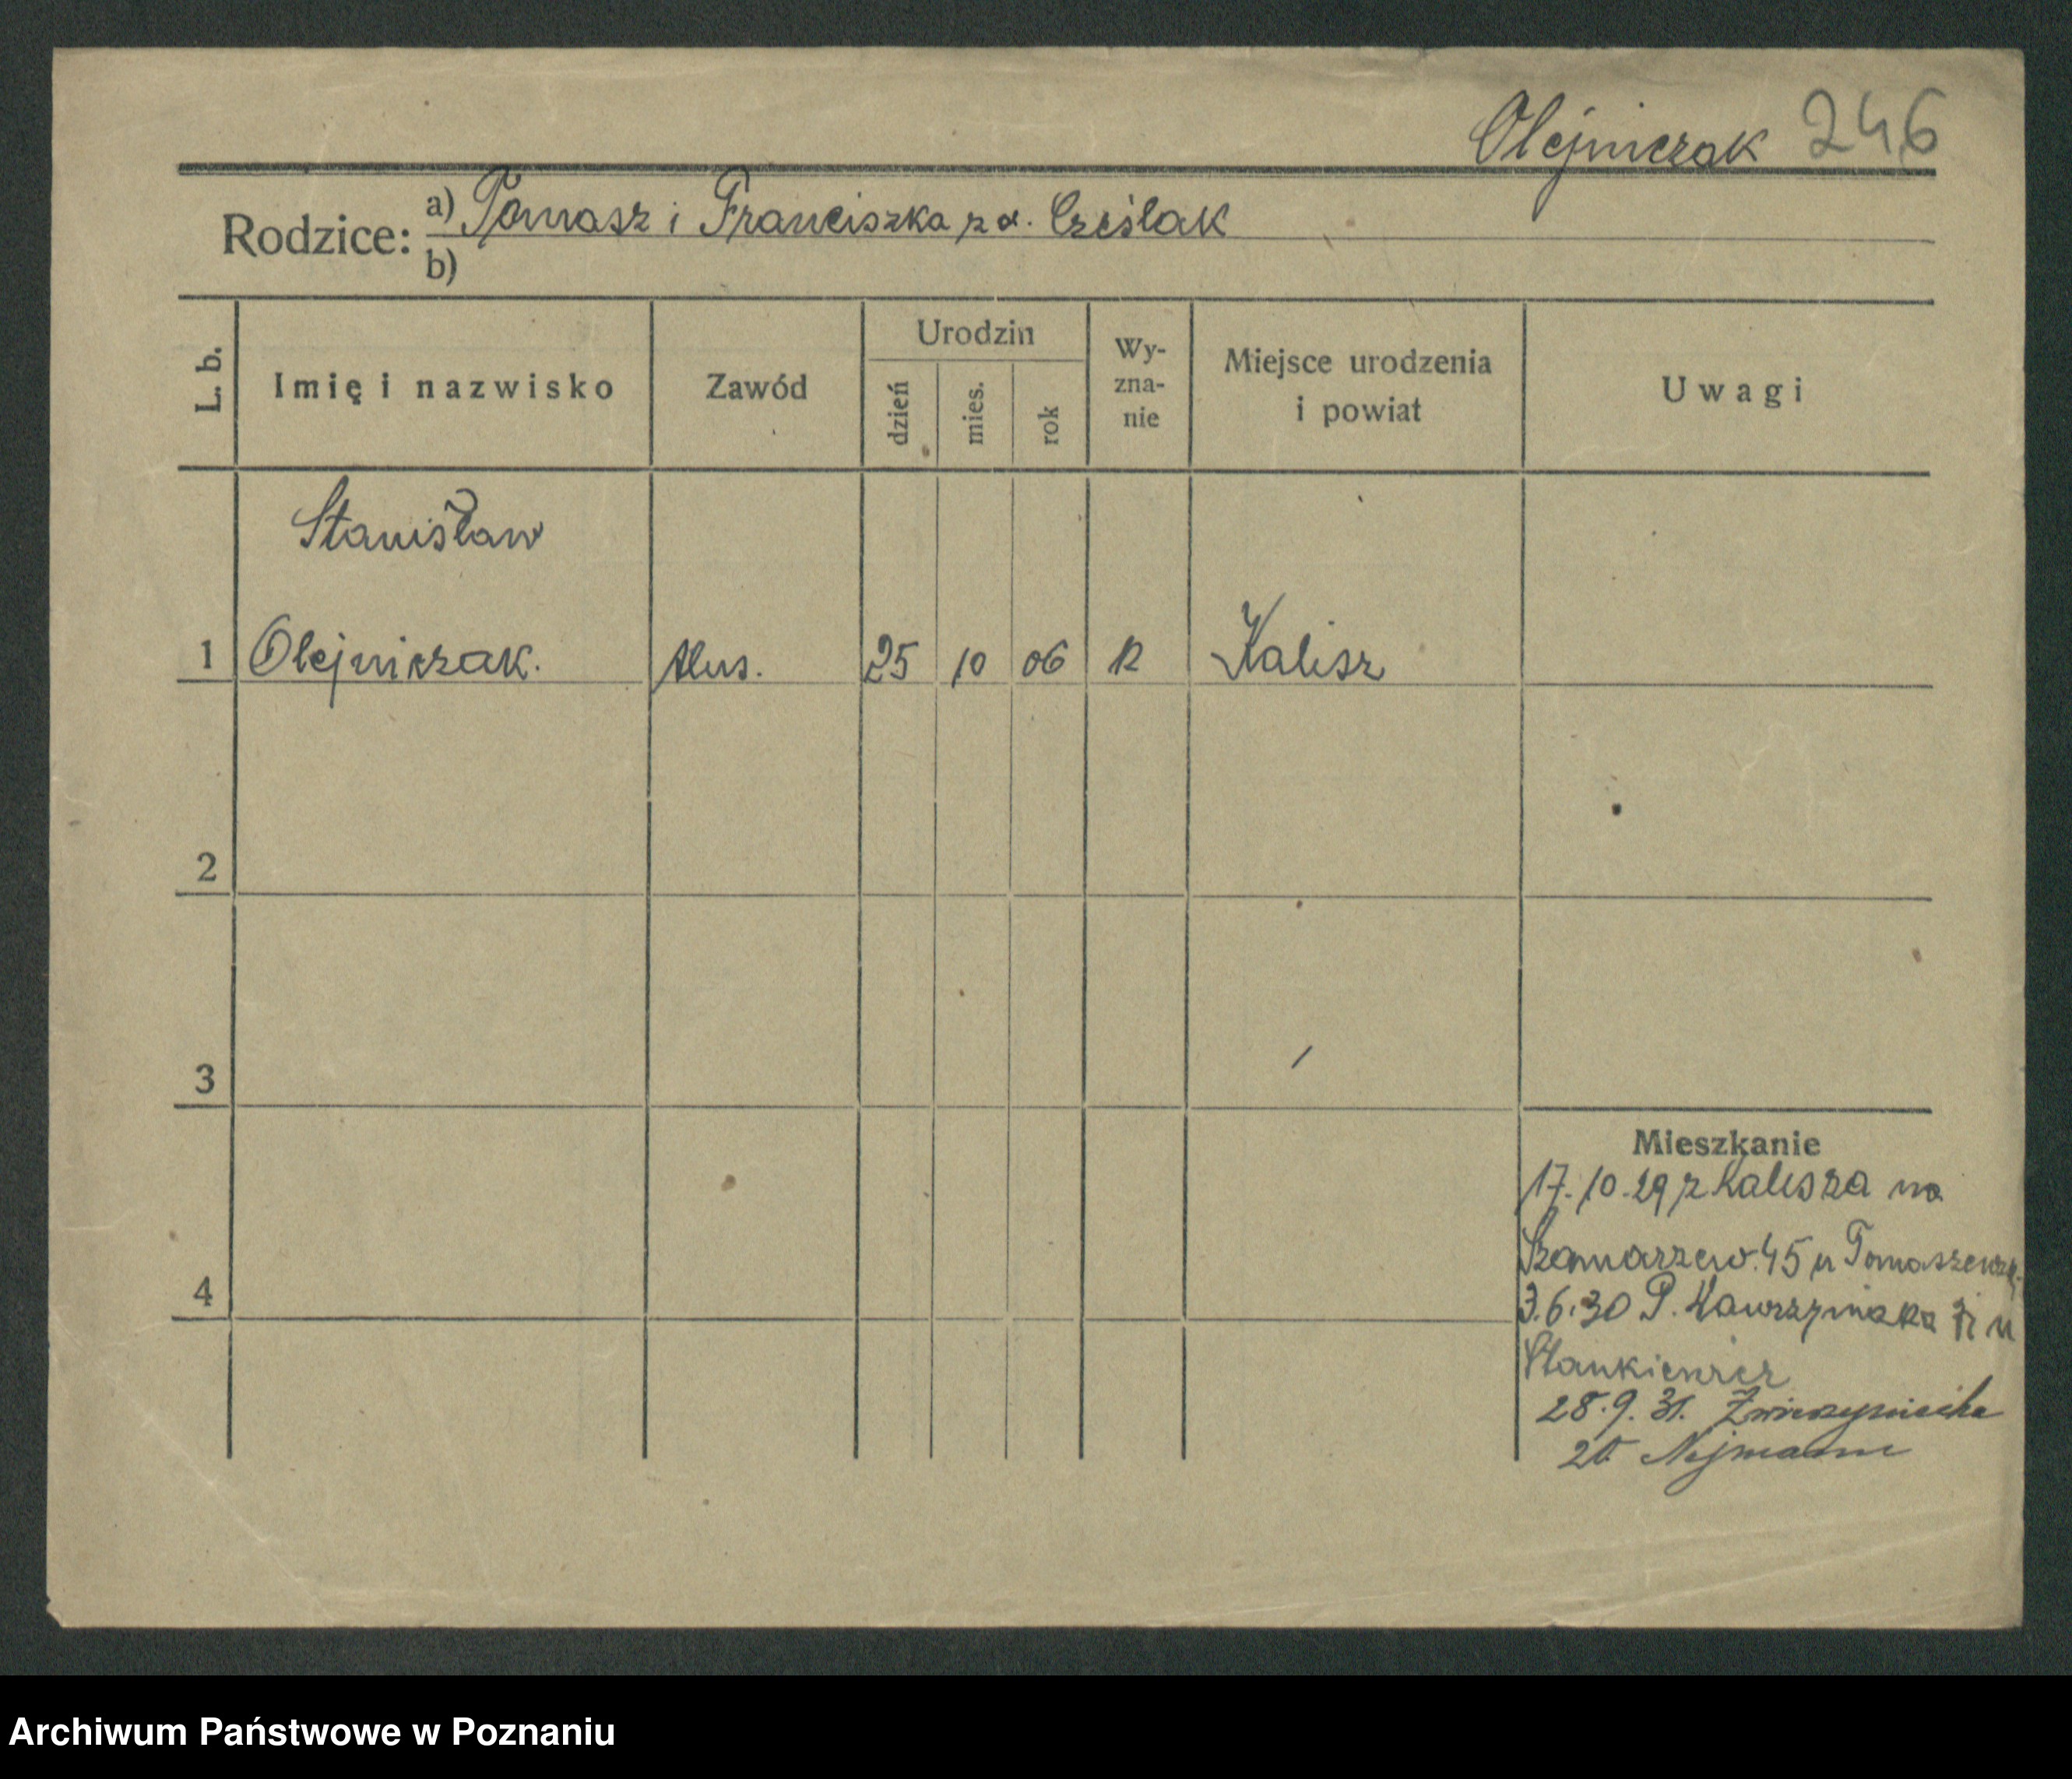 Olejniczak 246
Rodzice: a) Tomasz i Franciszka z d. Cześlak
b)
L. b. Imię i nazwisko Zawód Urodzin dzień mies. rok Wy-zna-nie Miejsce urodzenia i powiat Uwagi
Stanisław
1 Olejniczak. 25 10 06 Kalisz
2
3
Mieszkanie
17.10.29 z Kalisza na
4 Szamarzew. 45 u
3.6.30 P. Wawrzyniaka u
Stankiewicz
28.9.31. Zwierzyniecka
20 Nejmann
Archiwum Państwowe w Poznaniu